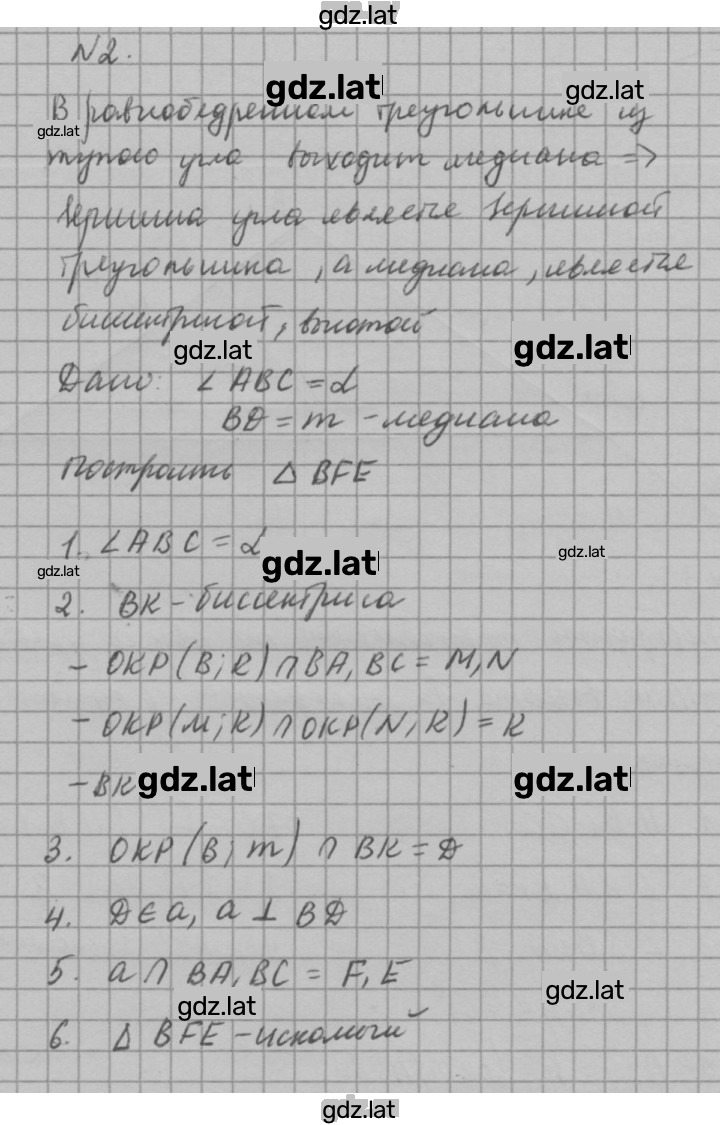 gdz.lat
N2.
gdz.lat
gdz.lat
В равнобедренном треугольнике из
gdz.lat
тупого угла выходит медиана =>
вершина угла является вершиной
треугольника, а медиана, является
биссектрисой, высотой
gdz.lat
gdz.lat
Дано: ∠ ABC = α
BD = m - медиана
Построить △ BFE
1. ∠ABC = α
gdz.lat
gdz.lat
gdz.lat
2. BK - биссектриса
- ОКР(B; R) ∩ BA, BC = M, N
- ОКР(M; R) ∩ ОКР(N; R) = K
- BK
gdz.lat
gdz.lat
3. ОКР(B; m) ∩ BK = D
4. D ∈ a, a ⊥ BD
5. a ∩ BA, BC = F, E
gdz.lat
gdz.lat
6. △ BFE - искомый
gdz.lat